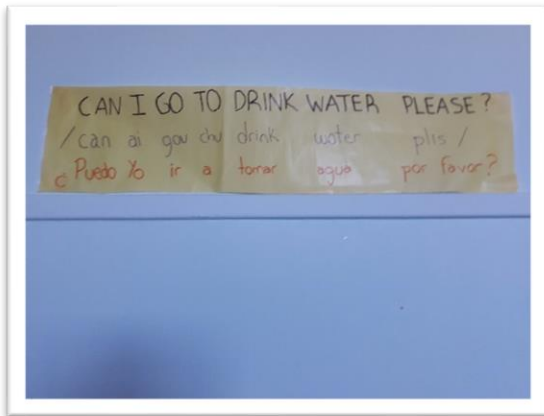 CAN I GO TO DRINK WATER PLEASE?
/can ai gou chu drink water plis/
¿Puedo Yo ir a tomar agua por favor?